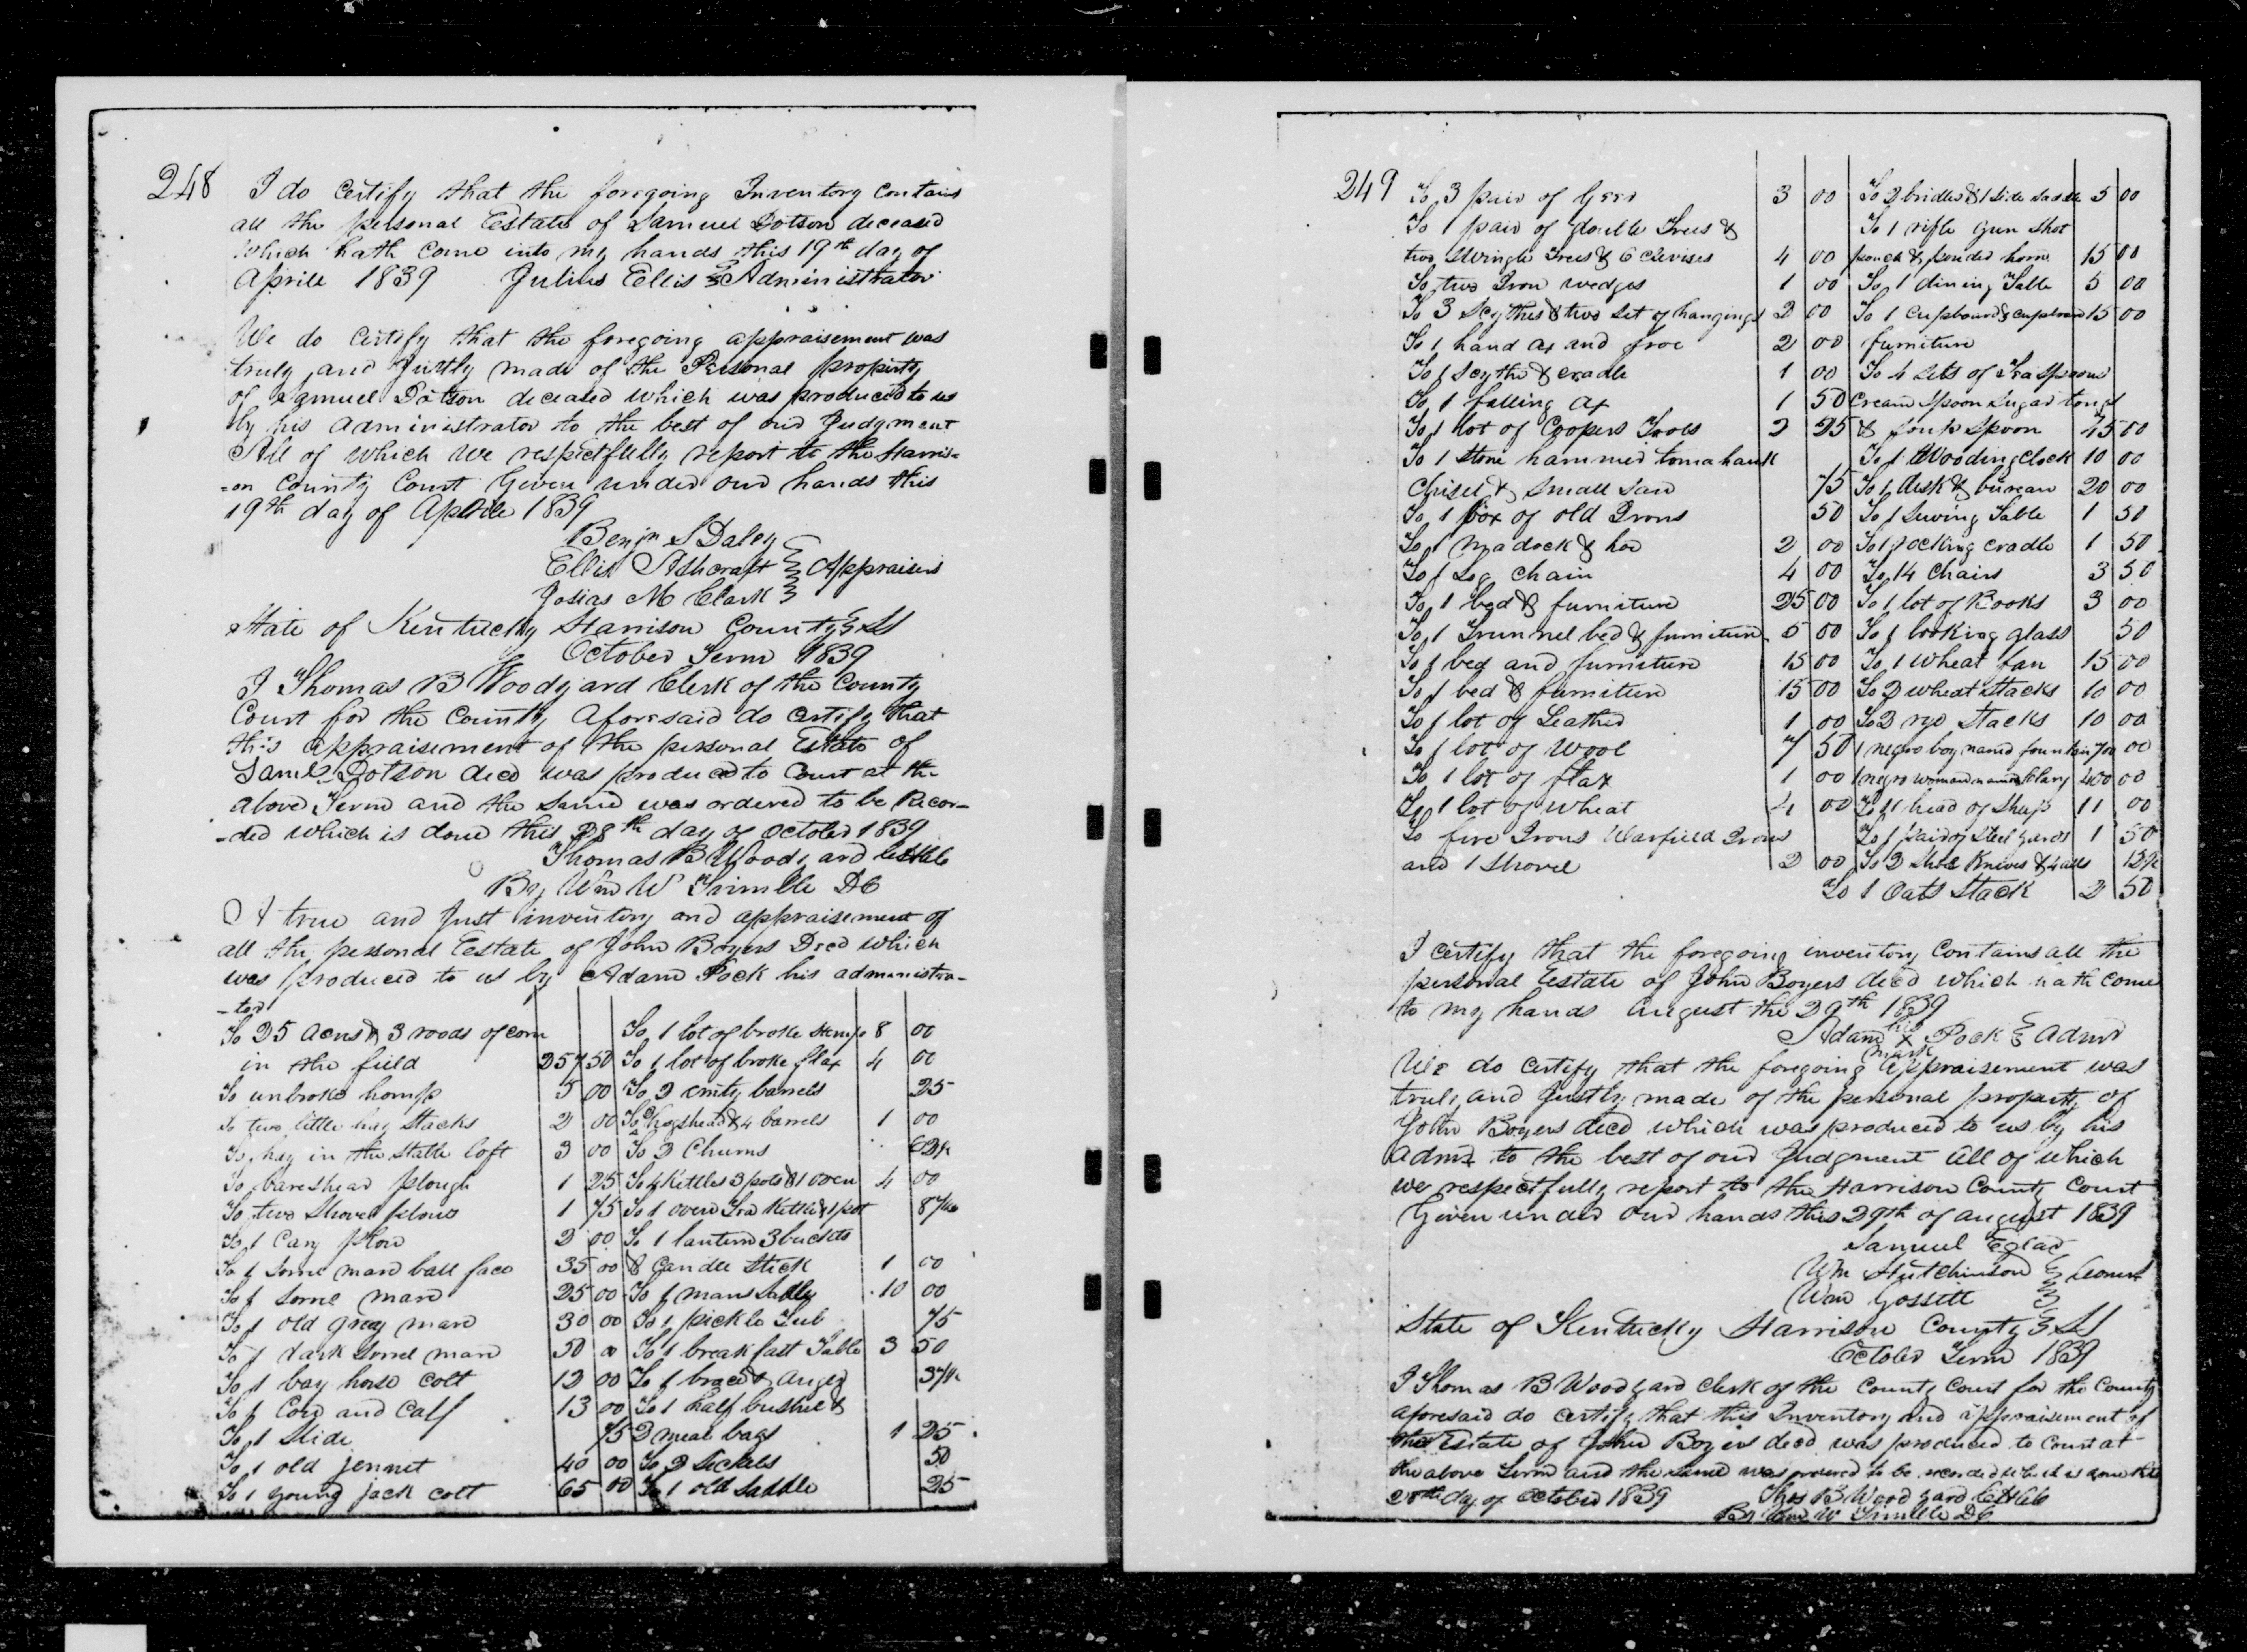 248
I do Certify that the foregoing Inventory Contains
all the personal Estate of Samuel Dotson deceased
which hath Come into my hands this 19th day of
Aprile 1839 Julius Ellis Administrator
We do Certify that the foregoing appraisement was
truly and Justly made of the Personal property
of Samuel Dotson deceased which was produced to us
by his Administrator to the best of our Judgment
All of which we respectfully report to the Harris=
=on County Court Given under our hands this
19th day of Aprile 1839
Benjn S Daley
Ellis Ashcraft Appraisers
Josias M Clark
State of Kentucky Harrison County SS
October Term 1839
I Thomas B Woodyard Clerk of the County
Court for the County Aforesaid do Certify that
this appraisement of the personal Estate of
Saml Dotson decd was produced to Court at the
above Term and the Same was ordered to be Recor-
-ded which is done this 28th day of October 1839
Thomas B Woodyard
By Wm W Trimble DC
A true and Just inventory and appraisement of
all the personal Estate of John Boyers Decd which
was produced to us by Adam Pock his administra-
-tor
To 25 Acres & 3 roods of corn
in the field 257 50
To unbroke hemp 5 00
To two little hay Stacks 2 00
To hay in the Stable loft 3 00
To bareshear plough 1 25
To two Shovel plows 1 75
To 1 Cary Plow 2 00
To 1 Sorrel mare ball face 35 00
To 1 Sorrel mare 25 00
To 1 old grey mare 30 00
To 1 dark Sorrel mare 50 00
To 1 bay horse colt 12 00
To 1 Cow and Calf 13 00
To 1 Slide 75
To 1 old jennet 40 00
To 1 young jack colt 65 00
To 1 lot of broke Hemp 8 00
To 1 lot of broke flax 4 00
To 2 emty barrels 25
To hogshead & 4 barrels 1 00
To 2 Churns 62½
To 4 Kettles 3 pots & 1 oven 4 00
To 1 oven Tea Kettle & 1 pot 87½
To 1 lantern 3 buckets
& Candle Stick 1 00
To 1 mans Saddle 10 00
To 1 pickle Tub 75
To 1 breakfast Table 3 50
To 1 brace & auger 37½
To 1 half bushel &
2 meal bags 1 25
To 2 Sickels 50
To 1 old Saddle 25
249
To 3 pair of Geer 3 00
To 1 pair of double Trees &
two Swingle Trees & 6 Clevises 4 00
To two Iron wedges 1 00
To 3 Scythes & two Set of hangings 2 00
To 1 hand ax and froe 2 00
To 1 Scythe & cradle 1 00
To 1 falling Ax 1 50
To 1 lot of Coopers Tools 2 25
To 1 Stone hammer tomahawk
Chisel & Small Saw 75
To 1 box of old Irons 50
To 1 madock & hoe 2 00
To 1 Log Chain 4 00
To 1 bed & furniture 25 00
To 1 Trunnel bed & furniture 5 00
To 1 bed and furniture 15 00
To 1 bed & furniture 15 00
To 1 lot of Leather 1 00
To 1 lot of Wool 7 50
To 1 lot of flax 1 00
To 1 lot of Wheat 4 00
To fire Irons Warfield Irons
and 1 Shovel 2 00
To 2 bridles & 1 Side Saddle 5 00
To 1 rifle gun Shot
pouch & powder horn 15 00
To 1 dining Table 5 00
To 1 Cupboard & cupboard 15 00
furniture
To 4 Sets of Tea Spoons
Cream Spoon Sugar tongs
& Spoon 00
To 1 Wooding Clock 10 00
To 1 desk & bureau 20 00
To 1 Sewing Table 1 50
To 1 rocking cradle 1 50
To 14 Chairs 3 50
To 1 lot of Books 3 00
To 1 looking glass 50
To 1 Wheat fan 15 00
To 2 wheat Stacks 10 00
To 2 rye Stacks 10 00
1 negro boy named fountain 700 00
1 negro woman named Clary 400 00
To 11 head of Sheep 11 00
To 1 pair of Steel yards 1 50
To 2 Shoe Knives & 4 alls 12½
To 1 Oats Stack 2 50
I Certify that the foregoing inventory Contains all the
personal Estate of John Boyers decd which hath come
to my hands August the 29th 1839
his
Adam x Pock Admr
mark
We do Certify that the foregoing Appraisement was
truly and Justly made of the personal property of
John Boyers decd which was produced to us by his
Admr to the best of our Judgment All of which
we respectfully report to the Harrison County Court
Given under our hands this 29th of August 1839
Samuel
Wm Hutchinson
Wm Gossett
State of Kentucky Harrison County SS
October Term 1839
I Thomas B Woodyard Clerk of the County Court for the County
aforesaid do Certify that this Inventory and appraisement of
the Estate of John Boyers decd was produced to Court at
the above Term and the same was ordered to be recorded which is done this
28th day of October 1839 Thos B Woodyard
By Wm W Trimble DC